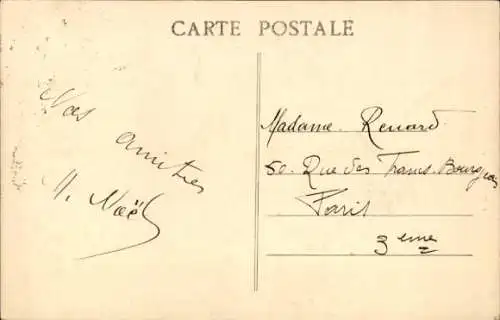 CARTE POSTALE
Nos
amitiés
M. Noël
Madame Renard
50 Rue des Francs-Bourgeois
Paris
3eme